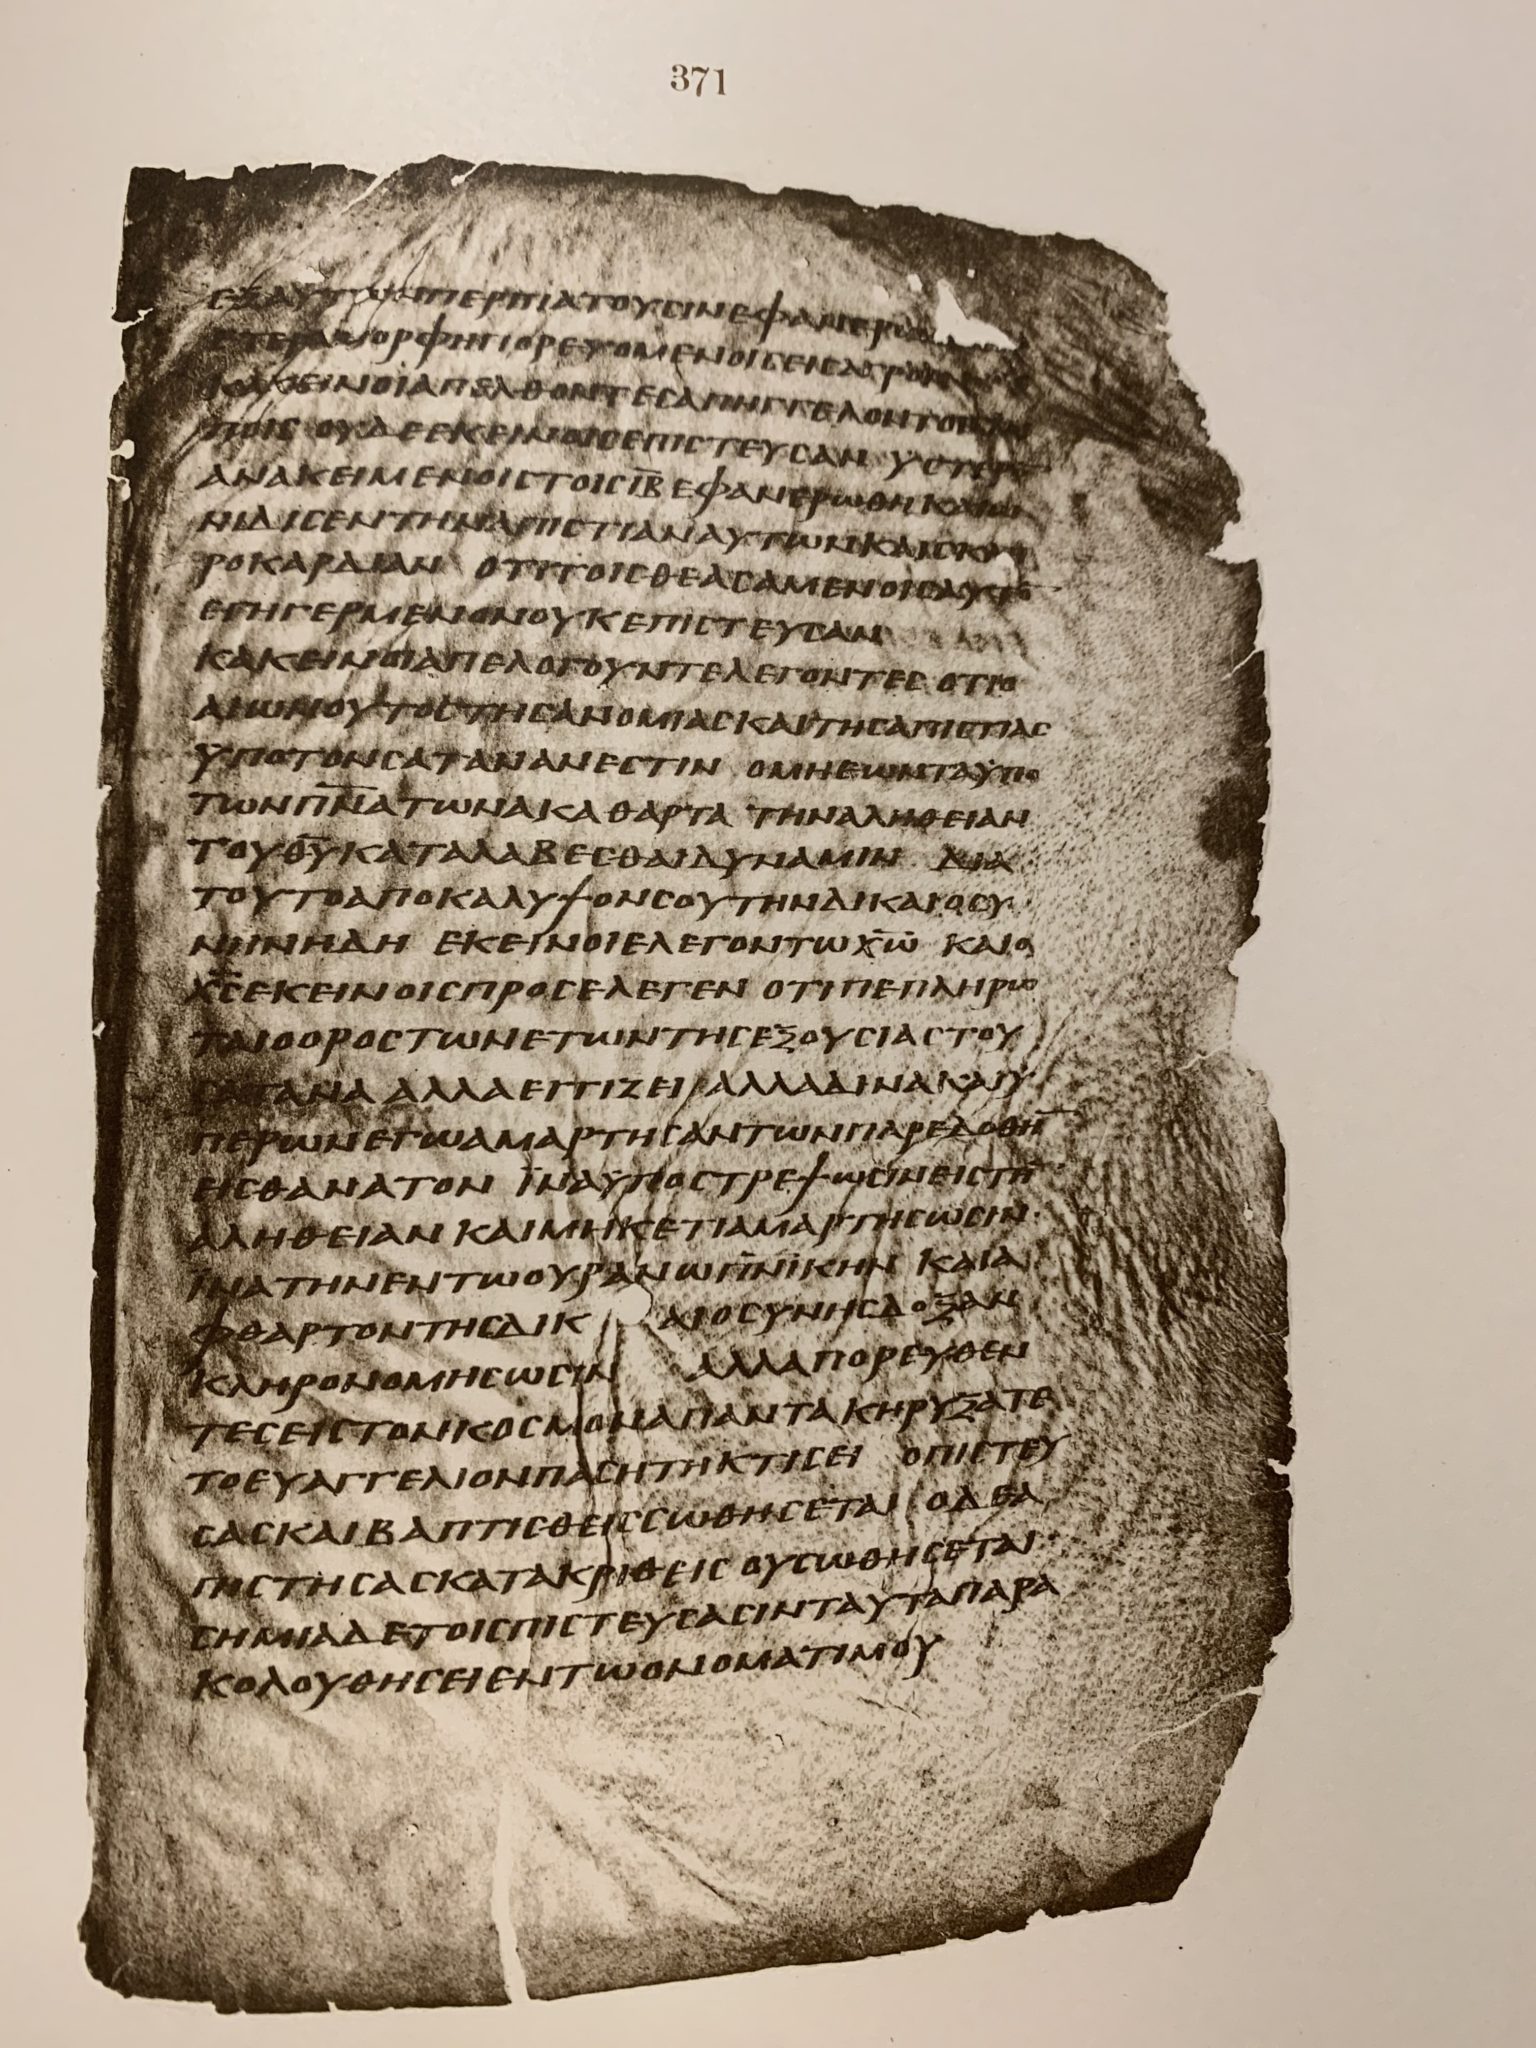 371
ΕΞΑΥΤΩΝΠΕΡΠΙΑΤΟΥCΙΝΕΦΑΝΕΡΩ
ΕΤΕΡΑΜΟΡΦΗΠΟΡΕΥΟΜΕΝΟΙCΕΙCΑΓΡΟΝ
ΚΑΚΕΙΝΟΙΑΠΕΛΘΟΝΤΕCΑΠΗΓΓΕΛΟΝΤΟΙCΛΟΙ
ΠΟΙC ΟΥΔΕΕΚΕΙΝΟΙCΕΠΙCΤΕΥCΑΝ ΥCΤΕΡΟΝ
ΑΝΑΚΕΙΜΕΝΟΙCΤΟΙCΙ̅Β̅ΕΦΑΝΕΡΩΘΗΚΑΙΩ
ΝΙΔΙCΕΝΤΗΝΑΠΙCΤΙΑΝΑΥΤΩΝΚΑΙCΚΛΗ
ΡΟΚΑΡΔΙΑΝ ΟΤΙΤΟΙCΘΕΑCΑΜΕΝΟΙCΑΥΤΟ̅
ΕΓΗΓΕΡΜΕΝΟΝΟΥΚΕΠΙCΤΕΥCΑΝ
ΚΑΚΕΙΝΟΙΑΠΕΛΟΓΟΥΝΤΕΛΕΓΟΝΤΕC ΟΤΙΟ
ΑΙΩΝΟΥΤΟCΤΗCΑΝΟΜΙΑCΚΑΙΤΗCΑΠΙCΤΙΑC
ΥΠΟΤΟΝCΑΤΑΝΑΝΕCΤΙΝ ΟΜΗΕΩΝΤΑΫΠΟ
ΤΩΝΠ̅Ν̅Α̅ΤΩΝΑΚΑΘΑΡΤΑ ΤΗΝΑΛΗΘΕΙΑΝ
ΤΟΥΘ̅Υ̅ΚΑΤΑΛΑΒΕCΘΑΙΔΥΝΑΜΙΝ ΔΙΑ
ΤΟΥΤΟΑΠΟΚΑΛΥΨΟΝCΟΥΤΗΝΔΙΚΑΙΟCΥ
ΝΗΝΗΔΗ ΕΚΕΙΝΟΙΕΛΕΓΟΝΤΩΧ̅Ω̅ ΚΑΙΟ
Χ̅C̅ΕΚΕΙΝΟΙCΠΡΟCΕΛΕΓΕΝ ΟΤΙΠΕΠΛΗΡΩ
ΤΑΙΟΟΡΟCΤΩΝΕΤΩΝΤΗCΕΞΟΥCΙΑCΤΟΥ
CΑΤΑΝΑ ΑΛΛΑΕΓΓΙΖΕΙ ΑΛΛΑΔΙΝΑΚΑΙΫ
ΠΕΡΩΝΕΓΩΑΜΑΡΤΗCΑΝΤΩΝΠΑΡΕΔΟΘΗ̅
ΕΙCΘΑΝΑΤΟΝ ΪΝΑΫΠΟCΤΡΕΨΩCΙΝΕΙCΤΗ̅
ΑΛΗΘΕΙΑΝ ΚΑΙΜΗΚΕΤΙΑΜΑΡΤΗCΩCΙΝ
ΪΝΑΤΗΝΕΝΤΩΟΥΡΑΝΩΠ̅Ν̅ΙΚΗΝ ΚΑΙΑ
ΦΘΑΡΤΟΝΤΗCΔΙΚ ΑΙΟCΥΝΗCΔΟΞΑΝ
ΚΛΗΡΟΝΟΜΗCΩCΙΝ ΑΛΛΑΠΟΡΕΥΘΕΝ
ΤΕCΕΙCΤΟΝΚΟCΜΟΝΑΠΑΝΤΑΚΗΡΥΞΑΤΕ
ΤΟΕΥΑΓΓΕΛΙΟΝΠΑCΗΤΗΚΤΙCΕΙ ΟΠΙCΤΕΥ
CΑCΚΑΙΒΑΠΤΙCΘΕΙCCΩΘΗCΕΤΑΙ ΟΔΕΑ
ΠΙCΤΗCΑCΚΑΤΑΚΡΙΘΕΙC ΟΥCΩΘΗCΕΤΑΙ
CΗΜΙΑΔΕΤΟΙCΠΙCΤΕΥCΑCΙΝΤΑΥΤΑΠΑΡΑ
ΚΟΛΟΥΘΗCΕΙΕΝΤΩΟΝΟΜΑΤΙΜΟΥ